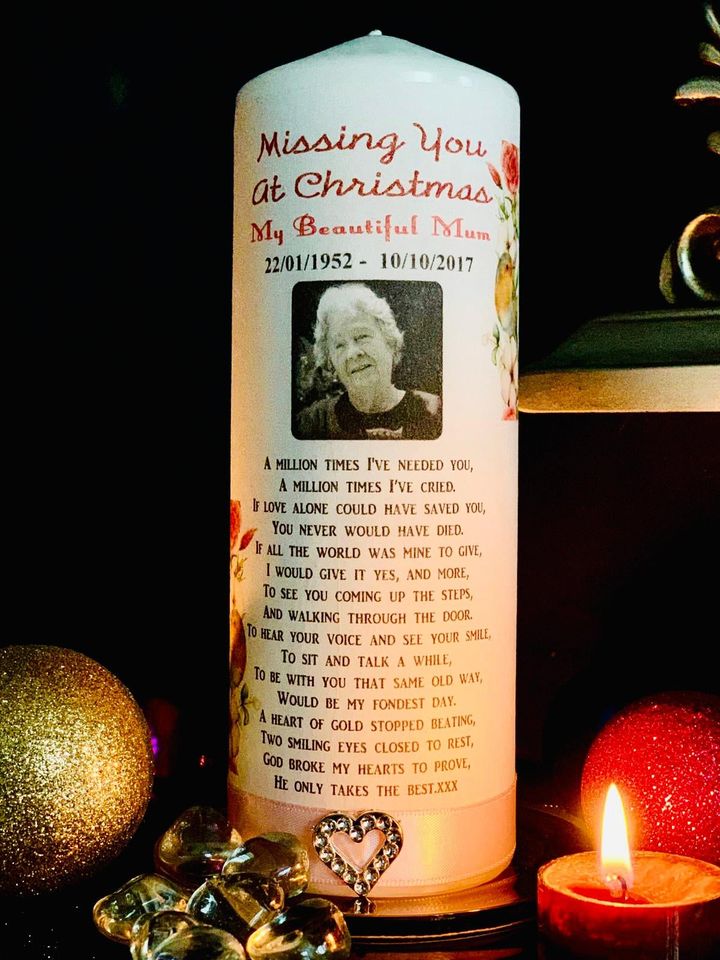 Missing You
At Christmas
My Beautiful Mum
22/01/1952 - 10/10/2017
A MILLION TIMES I'VE NEEDED YOU,
A MILLION TIMES I'VE CRIED.
IF LOVE ALONE COULD HAVE SAVED YOU,
YOU NEVER WOULD HAVE DIED.
IF ALL THE WORLD WAS MINE TO GIVE,
I WOULD GIVE IT YES, AND MORE,
TO SEE YOU COMING UP THE STEPS,
AND WALKING THROUGH THE DOOR.
TO HEAR YOUR VOICE AND SEE YOUR SMILE,
TO SIT AND TALK A WHILE,
TO BE WITH YOU THAT SAME OLD WAY,
WOULD BE MY FONDEST DAY.
A HEART OF GOLD STOPPED BEATING,
TWO SMILING EYES CLOSED TO REST,
GOD BROKE MY HEARTS TO PROVE,
HE ONLY TAKES THE BEST.XXX